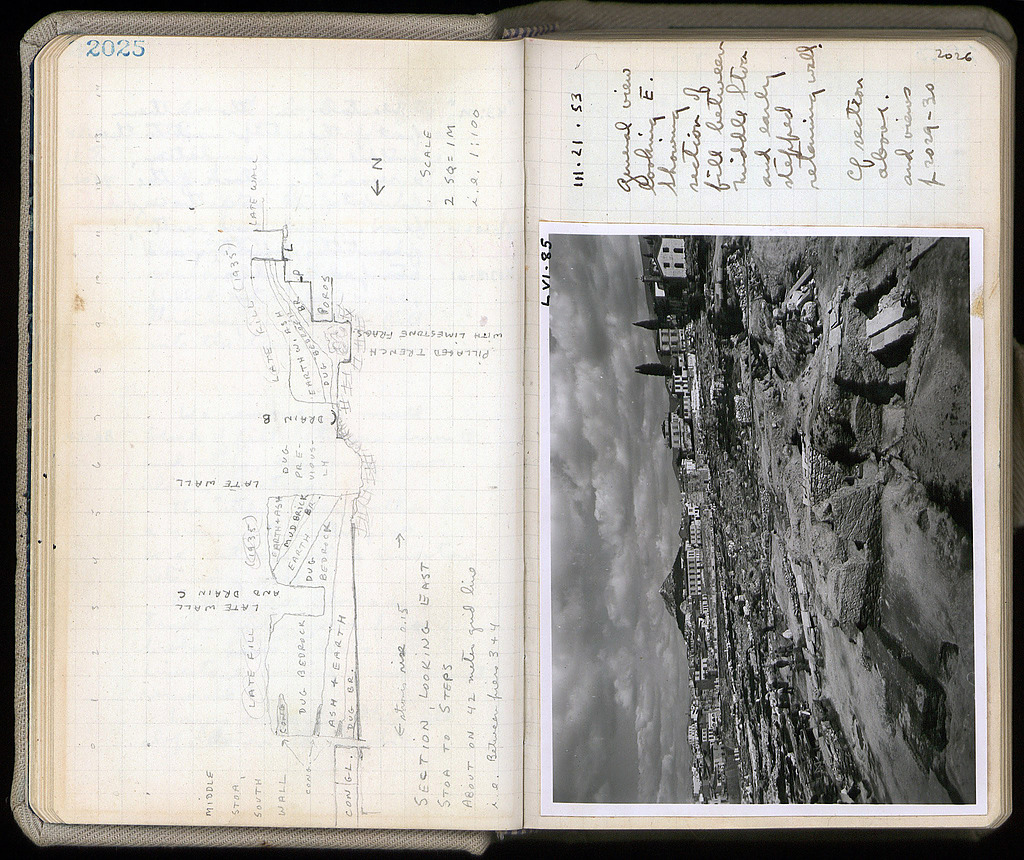 2025
MIDDLE
STOA
SOUTH
WALL
CONGL.
CONGL.
CONGL.
LATE FILL
DUG BEDROCK
ASH + EARTH
DUG BR.
LATE WALL
AND DRAIN C
(1935)
EARTH + ASH
MUD BRICK
EARTH BR.
DUG
BEDROCK
LATE WALL
DUG
PRE-
VIOUS-
LY
DRAIN B
LATE FILL (1935)
EARTH W. ASH
DUG BEDROCK
POROS
LATE WALL
PILLAGED TRENCH
WITH LIMESTONE FRAGS
N
0 1 2 3 4 5 6 7 8 9 10 11 12 13 14
rise 0.15
SECTION, LOOKING EAST
STOA TO STEPS
ABOUT ON 42 meter grid line
i.e. Between piers 3 + 4
SCALE
2 SQ = 1 M
i.e. 1:100
2026
III · 21 · 53
General view
looking E.
showing
section of
fill between
Middle Stoa
and early
stepped
retaining wall.
Cf section
above.
and views
p 2029-30
LVI-85